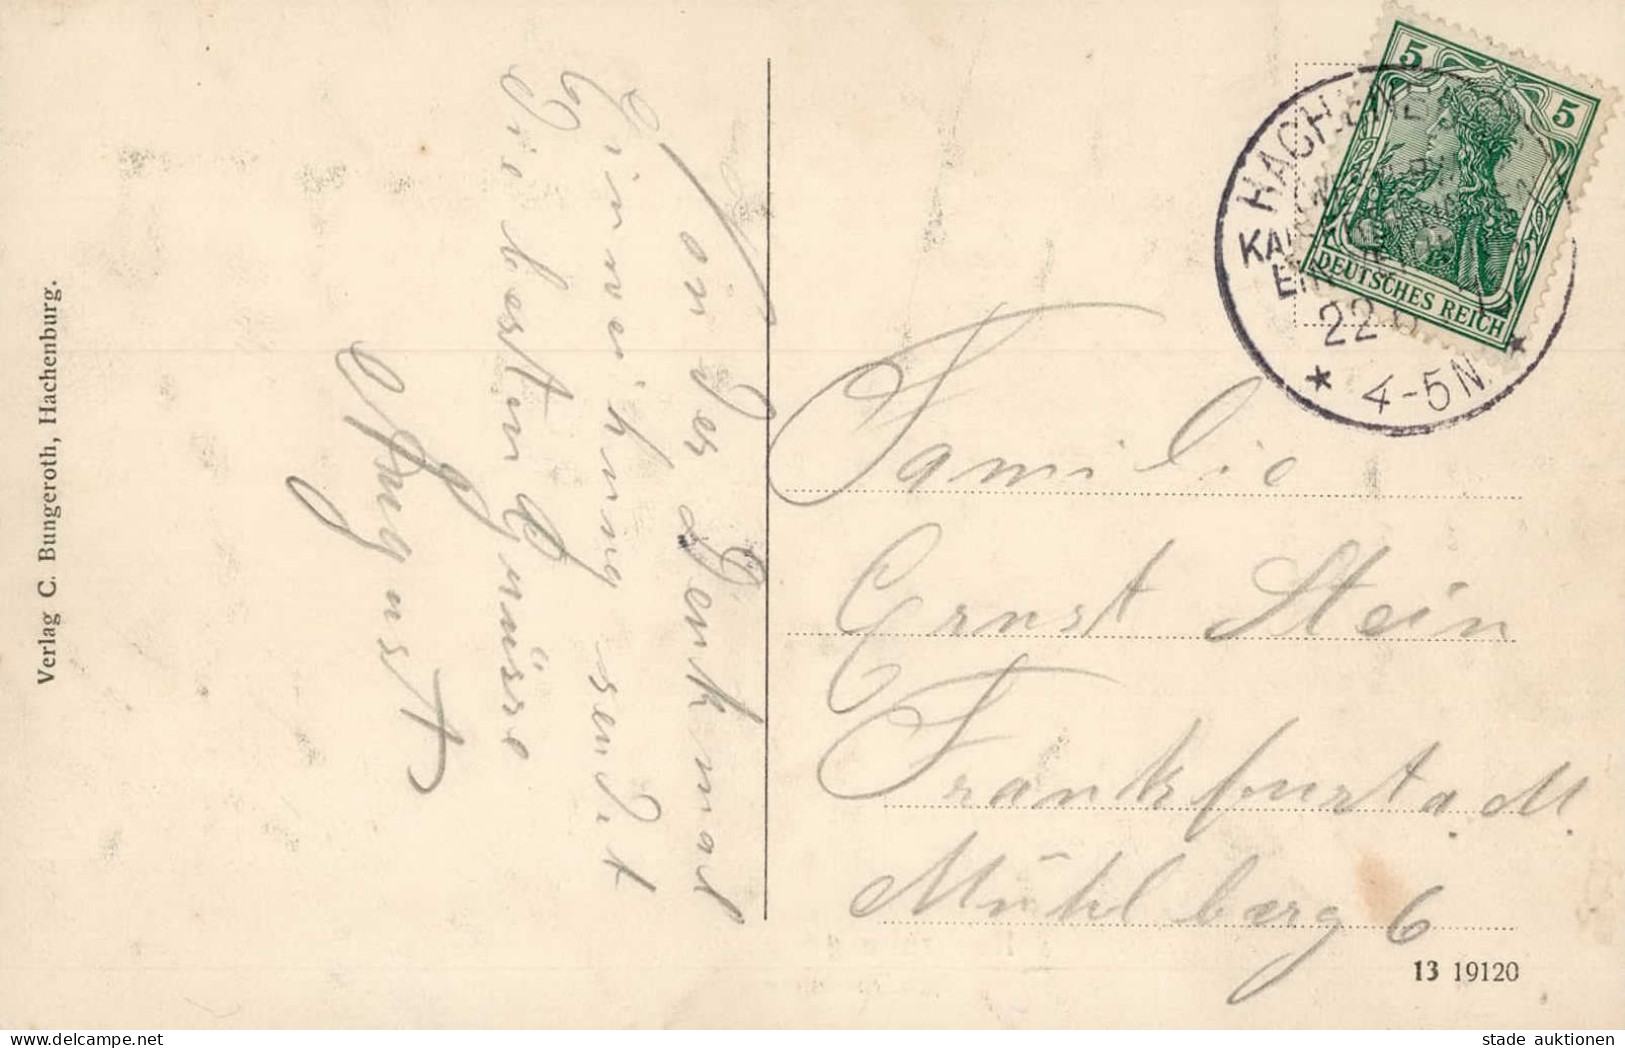 Von der Denkmal
Einweihung sendet
Die besten Grüsse
August
Verlag C. Bungeroth, Hachenburg.
5 5
DEUTSCHES REICH
HACHENB
22
4-5N.
Familie
Ernst Stein
Frankfurt a. M.
Mühlberg 6
13 19120
delcampe.net
stade auktionen